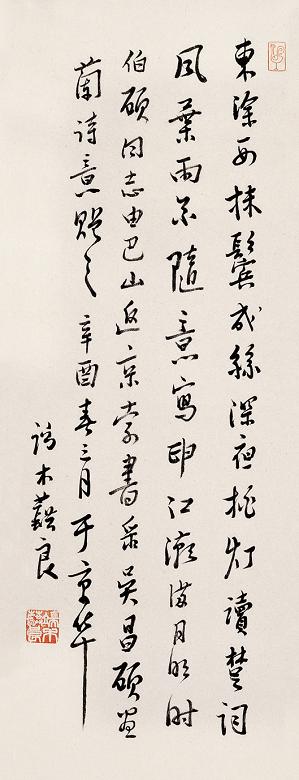 東塗西抹鬢成絲深夜挑灯讀楚詞
風葉雨花隨意寫申江潮滿月明時
伯碩同志由巴山返京索書录吳昌碩画
蘭詩意贈之 辛酉春三月于京华
端木蕻良